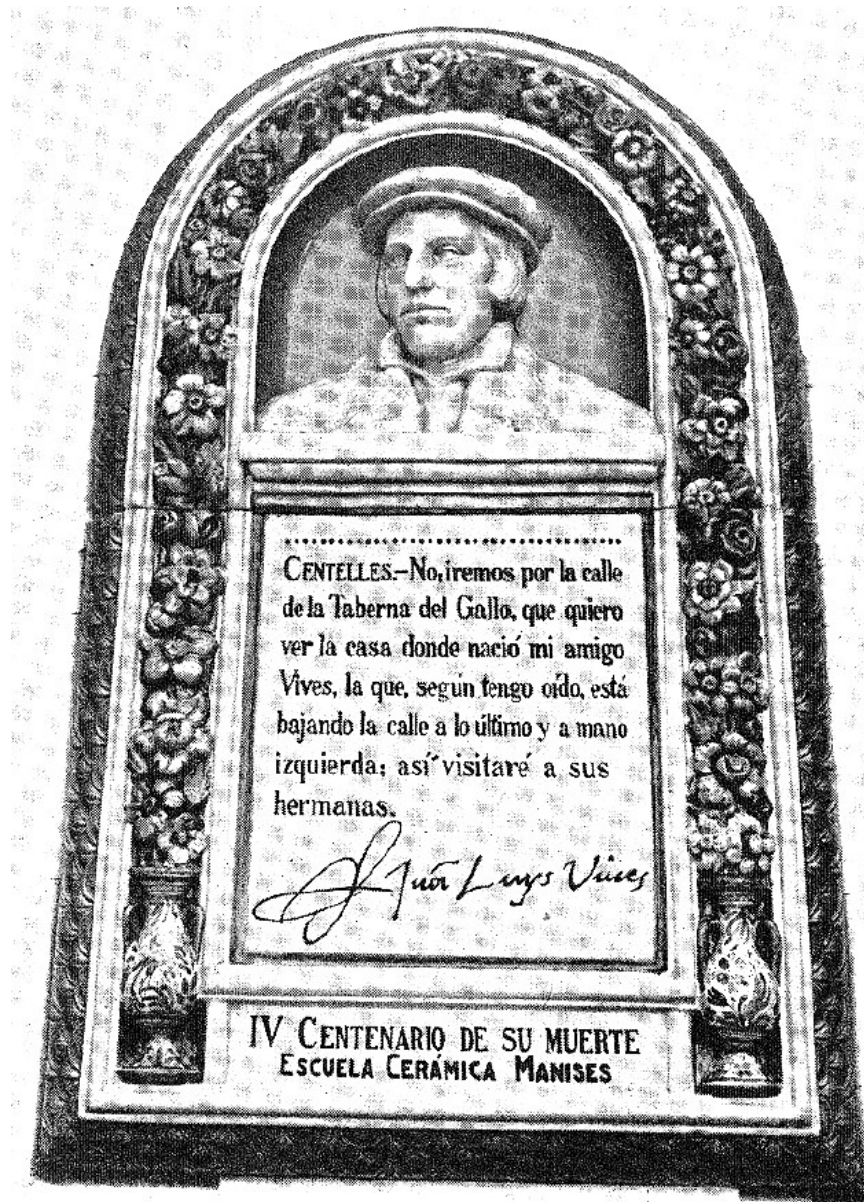 CENTELLES.-No, iremos por la calle
de la Taberna del Gallo, que quiero
ver la casa donde nació mi amigo
Vives, la que, segun tengo oído, está
bajando la calle a lo último y a mano
izquierda; así visitaré a sus
hermanas.
Juā Luys Viues
IV CENTENARIO DE SU MUERTE
ESCUELA CERÁMICA MANISES